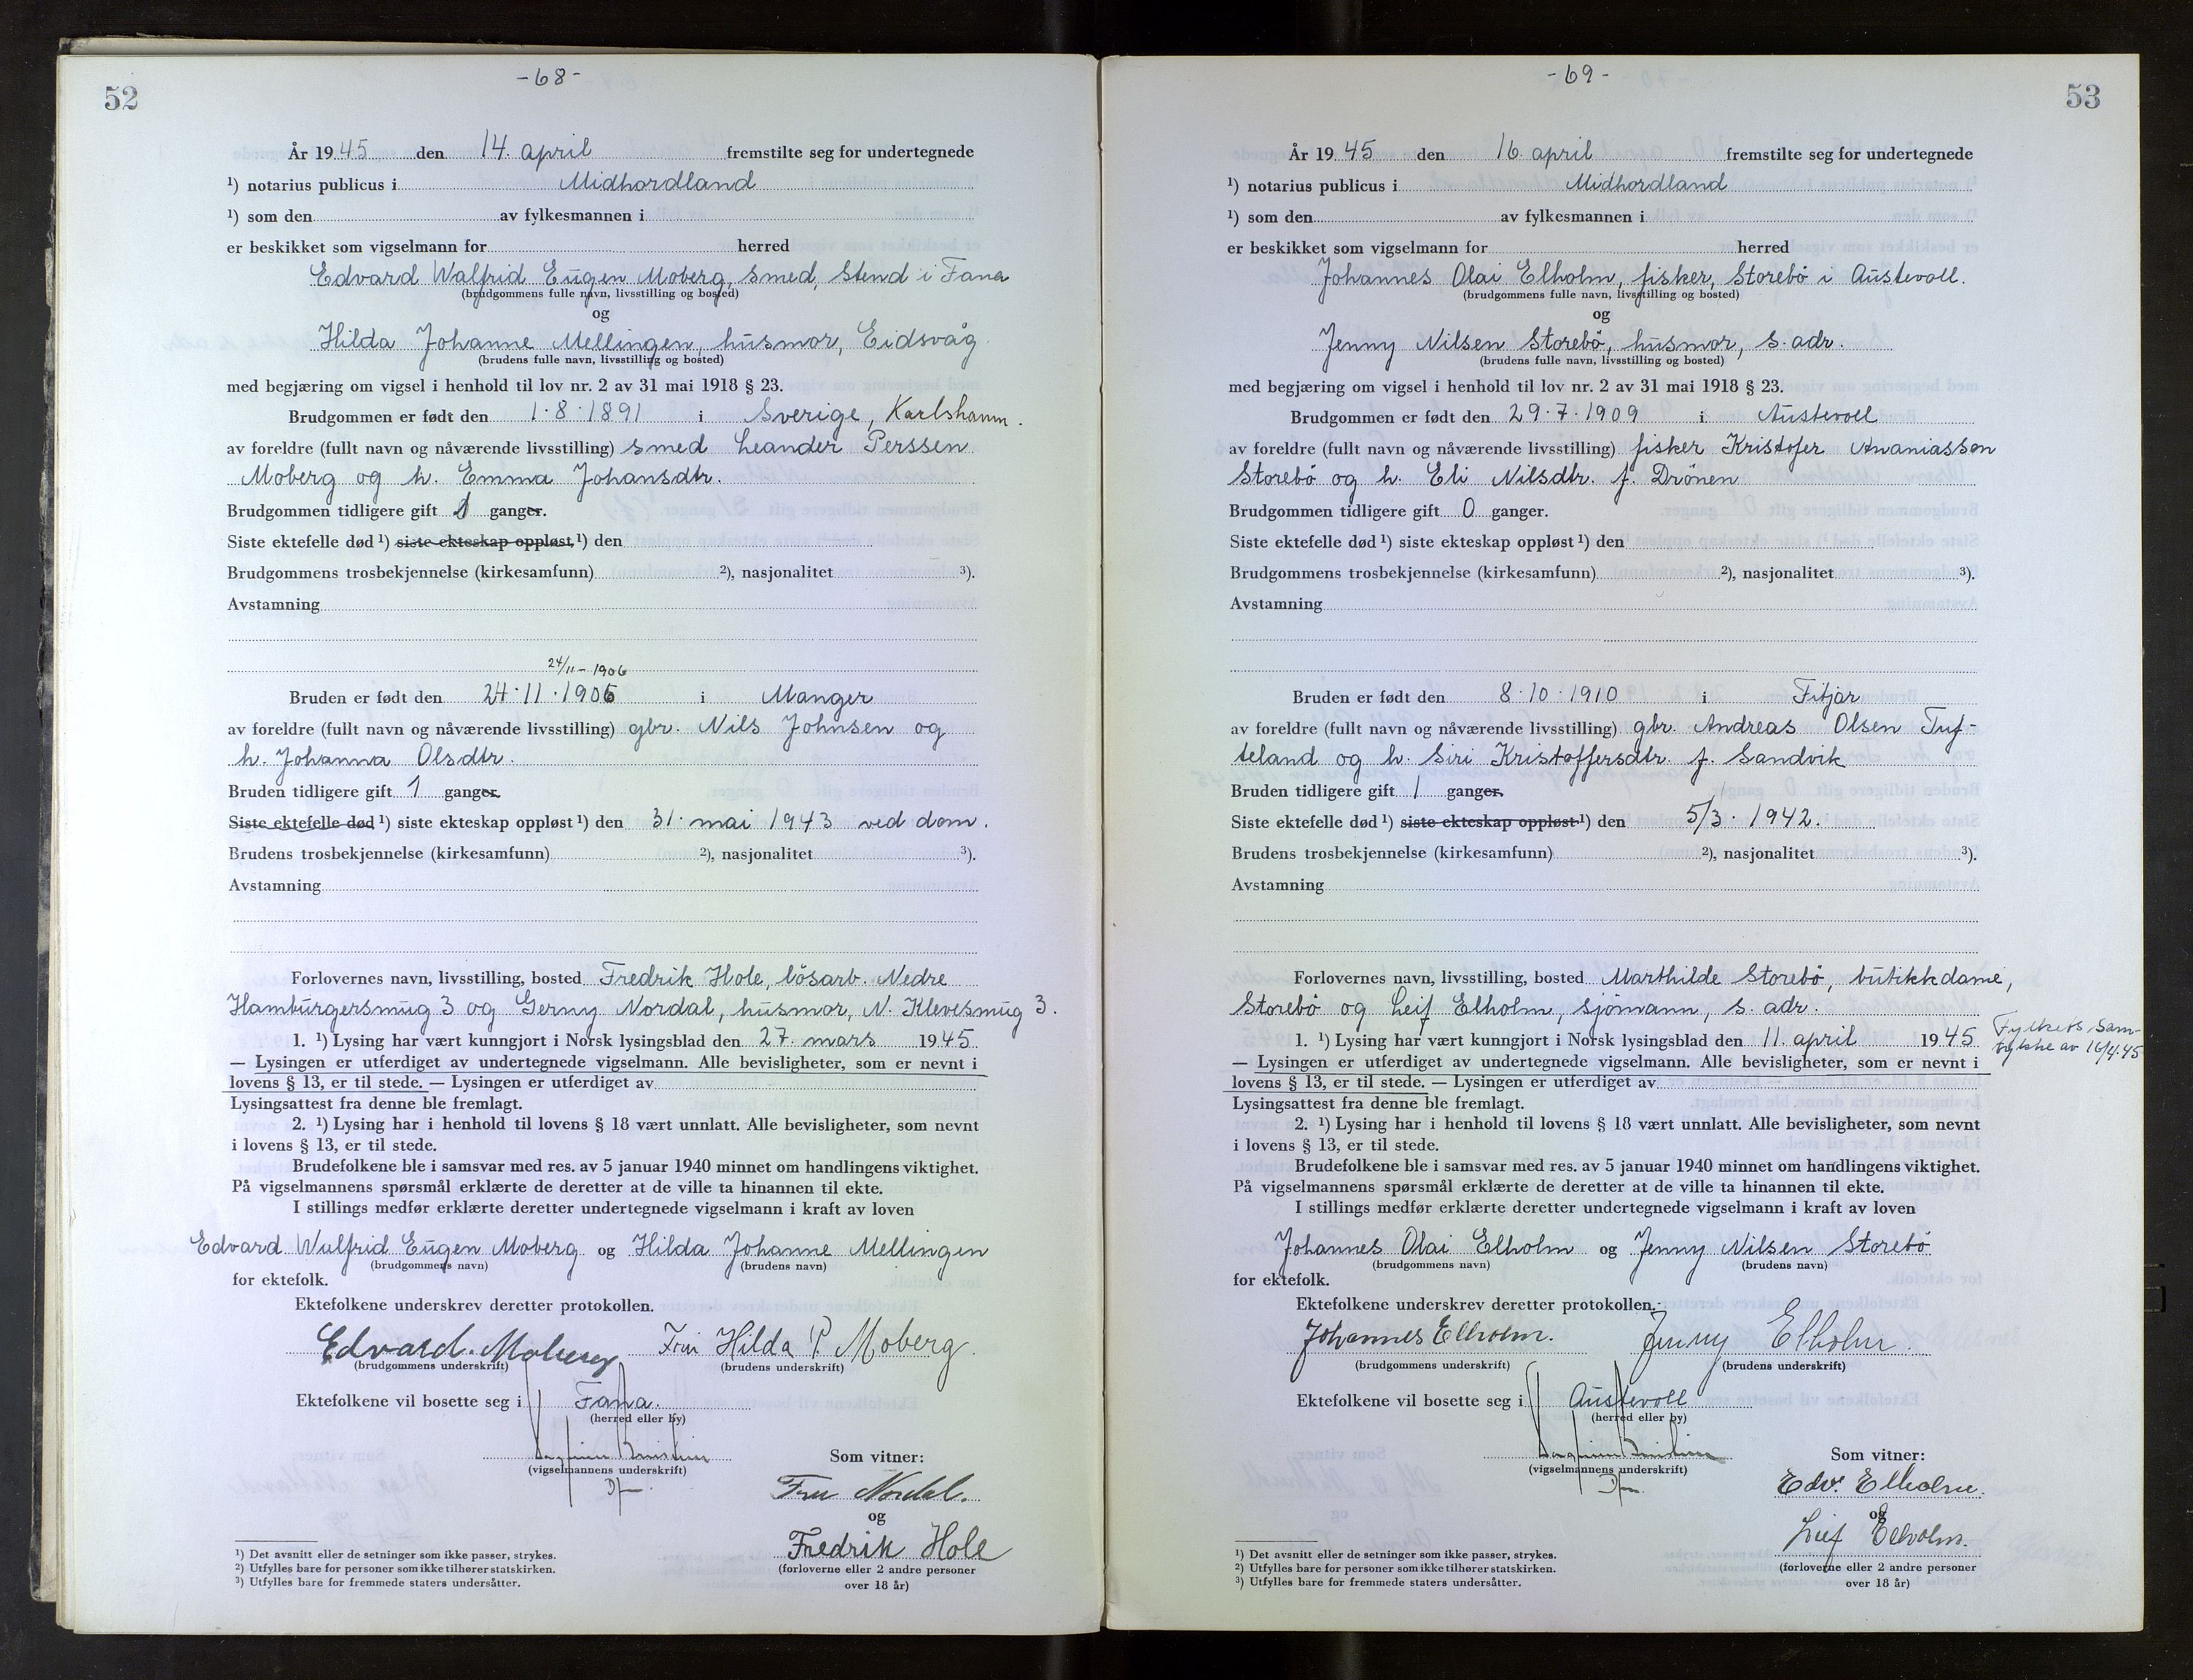 52
-68-
År 1945 den 14. april fremstilte seg for undertegnede
¹) notarius publicus i Midhordland
¹) som den av fylkesmannen i
er beskikket som vigselmann for herred
Edvard Walfrid Eugen Moberg, smed, Stend i Fana
(brudgommens fulle navn, livsstilling og bosted)
og
Hilda Johanne Mellingen, husmor, Eidsvåg
(brudens fulle navn, livsstilling og bosted)
med begjæring om vigsel i henhold til lov nr. 2 av 31 mai 1918 § 23.
Brudgommen er født den 1.8.1891 i Sverige, Karlshamn.
av foreldre (fullt navn og nåværende livsstilling) smed Leander Perssen
Moberg og h. Emma Johansdtr.
Brudgommen tidligere gift 1 ganger.
Siste ektefelle død ¹) siste ekteskap oppløst ¹) den
Brudgommens trosbekjennelse (kirkesamfunn) ²), nasjonalitet ³).
Avstamning
24/11-1906
Bruden er født den 24.11.1906 i Manger
av foreldre (fullt navn og nåværende livsstilling) gbr. Nils Johnsen og
h. Johanna Olsdtr.
Bruden tidligere gift 1 ganger.
Siste ektefelle død ¹) siste ekteskap oppløst ¹) den 31. mai 1943 ved dom.
Brudens trosbekjennelse (kirkesamfunn) ²), nasjonalitet ³).
Avstamning
Forlovernes navn, livsstilling, bosted Fredrik Hole, lösarb. Nedre
Hamburgersmug 3 og Gerny Nordal, husmor, N. Klevesmug 3.
1. ¹) Lysing har vært kunngjort i Norsk lysingsblad den 27. mars 1945
— Lysingen er utferdiget av undertegnede vigselmann. Alle bevisligheter, som er nevnt i
lovens § 13, er til stede. — Lysingen er utferdiget av
Lysingsattest fra denne ble fremlagt.
2. ¹) Lysing har i henhold til lovens § 18 vært unnlatt. Alle bevisligheter, som nevnt
i lovens § 13, er til stede.
Brudefolkene ble i samsvar med res. av 5 januar 1940 minnet om handlingens viktighet.
På vigselmannens spørsmål erklærte de deretter at de ville ta hinannen til ekte.
I stillings medfør erklærte deretter undertegnede vigselmann i kraft av loven
Edvard Walfrid Eugen Moberg og Hilda Johanne Mellingen
(brudgommens navn) (brudens navn)
for ektefolk.
Ektefolkene underskrev deretter protokollen.
Edvard. Moberg Fru Hilda P. Moberg.
(brudgommens underskrift) (brudens underskrift)
Ektefolkene vil bosette seg i Fana.
(herred eller by)
Som vitner:
(vigselmannens underskrift)
Fru Nordal.
og
Fredrik Hole
(forloverne eller 2 andre personer
over 18 år)
¹) Det avsnitt eller de setninger som ikke passer, strykes.
²) Utfylles bare for personer som ikke tilhører statskirken.
³) Utfylles bare for fremmede staters undersåtter.
53
-69-
År 1945 den 16. april fremstilte seg for undertegnede
¹) notarius publicus i Midhordland
¹) som den av fylkesmannen i
er beskikket som vigselmann for herred
Johannes Olai Elholm, fisker, Storebö i Austevoll.
(brudgommens fulle navn, livsstilling og bosted)
og
Jenny Nilsen Storebö, husmor, s. adr.
(brudens fulle navn, livsstilling og bosted)
med begjæring om vigsel i henhold til lov nr. 2 av 31 mai 1918 § 23.
Brudgommen er født den 29.7.1909 i Austevoll
av foreldre (fullt navn og nåværende livsstilling) fisker Kristofer Ananiassen
Storebö og h. Eli Nilsdtr. f. Drönen
Brudgommen tidligere gift 0 ganger.
Siste ektefelle død ¹) siste ekteskap oppløst ¹) den
Brudgommens trosbekjennelse (kirkesamfunn) ²), nasjonalitet ³).
Avstamning
Bruden er født den 8.10.1910 i Fitjar
av foreldre (fullt navn og nåværende livsstilling) gbr. Andreas Olsen Tuf-
teland og h. Siri Kristoffersdtr. f. Sandvik
Bruden tidligere gift 1 ganger.
Siste ektefelle død ¹) siste ekteskap oppløst ¹) den 5/3. 1942.
Brudens trosbekjennelse (kirkesamfunn) ²), nasjonalitet ³).
Avstamning
Forlovernes navn, livsstilling, bosted Marthilde Storebö, butikkdame,
Storebö og Leif Elholm, sjömann, s. adr.
1. ¹) Lysing har vært kunngjort i Norsk lysingsblad den 11. april 1945
Fylkets sam-
tykke av 16/4.45
— Lysingen er utferdiget av undertegnede vigselmann. Alle bevisligheter, som er nevnt i
lovens § 13, er til stede. — Lysingen er utferdiget av
Lysingsattest fra denne ble fremlagt.
2. ¹) Lysing har i henhold til lovens § 18 vært unnlatt. Alle bevisligheter, som nevnt
i lovens § 13, er til stede.
Brudefolkene ble i samsvar med res. av 5 januar 1940 minnet om handlingens viktighet.
På vigselmannens spørsmål erklærte de deretter at de ville ta hinannen til ekte.
I stillings medfør erklærte deretter undertegnede vigselmann i kraft av loven
Johannes Olai Elholm og Jenny Nilsen Storebö
(brudgommens navn) (brudens navn)
for ektefolk.
Ektefolkene underskrev deretter protokollen.
Johannes Elholm. Jenny Elholm.
(brudgommens underskrift) (brudens underskrift)
Ektefolkene vil bosette seg i Austevoll
(herred eller by)
Som vitner:
(vigselmannens underskrift)
Edv. Elholm.
og
Leif Elholm.
(forloverne eller 2 andre personer
over 18 år)
¹) Det avsnitt eller de setninger som ikke passer, strykes.
²) Utfylles bare for personer som ikke tilhører statskirken.
³) Utfylles bare for fremmede staters undersåtter.